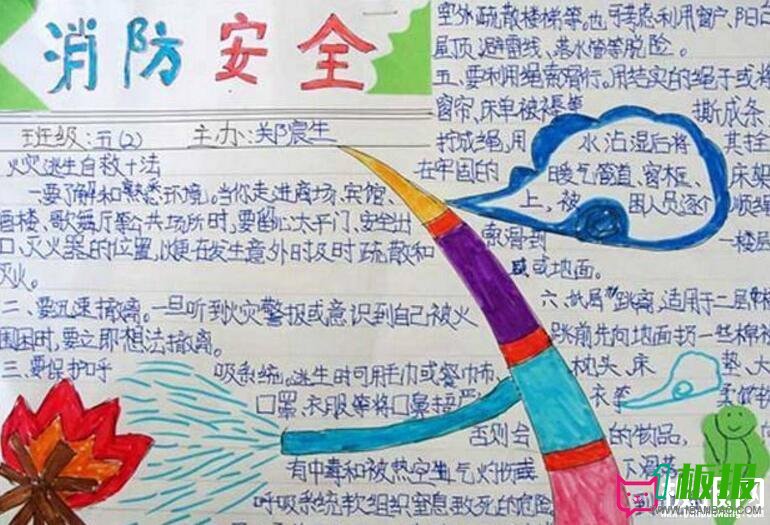 消防安全
班级:五(2) 主办:郑震生
火灾逃生自救十法
一要了解和熟悉环境。当你走进商场、宾馆、
酒楼、歌舞厅等公共场所时,要留心太平门、安全出
口、灭火器的位置,以便在发生意外时及时疏散和
灭火。
二、要迅速撤离。一旦听到火灾警报或意识到自己被火
围困时,要立即想法撤离。
三、要保护呼吸系统。逃生时可用毛巾或餐巾布、
口罩、衣服等将口鼻捂严,否则会
有中毒和被热空气灼伤或
呼吸系统软组织窒息致死的危险
室外疏散楼梯等。也可考虑利用窗户、阳台
屋顶、避雷线、落水管等脱险。
五、要利用绳索滑行。用结实的绳子或将
窗帘、床单被褥等撕成条,
拧成绳,用水沾湿后将其拴
在牢固的暖气管道、窗木框、床架
上,被困人员逐个顺绳
索滑到一楼层
或地面。
六、低层跳离,适用于二层楼
跳前先向地面扔一些棉被
枕头、床垫、大
衣等柔软
的物品,
下滑落
板报
www.1banbao.com